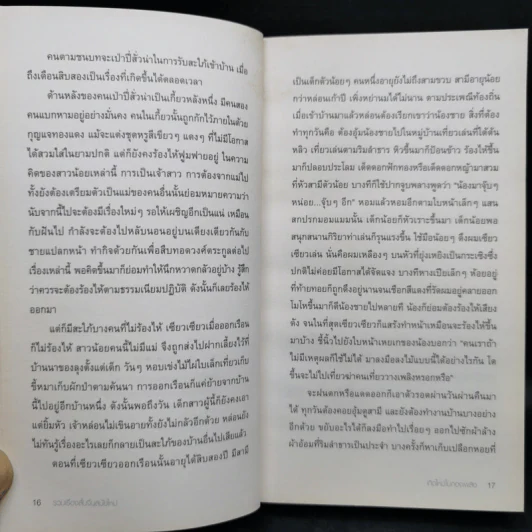 คนตามชนบทจะเป่าปี่สั่วน่าในการรับสะใภ้เข้าบ้าน เมื่อ
ถึงเดือนสิบสองเป็นเรื่องที่เกิดขึ้นได้ตลอดเวลา
ด้านหลังของคนเป่าปี่สั่วน่าเป็นเกี้ยวหลังหนึ่ง มีคนสอง
คนแบกหามอยู่อย่างมั่นคง คนในเกี้ยวนั้นถูกกักไว้ภายในด้วย
กุญแจทองแดง แม้จะแต่งชุดหรูสีเขียวๆ แดงๆ ที่ไม่มีโอกาส
ได้สวมใส่ในยามปกติ แต่ก็ยังคงร้องไห้ฟูมฟายอยู่ ในความ
คิดของสาวน้อยเหล่านี้ การเป็นเจ้าสาว การต้องจากแม่ไป
ทั้งยังต้องเตรียมตัวเป็นแม่ของคนอื่นนั้นย่อมหมายความว่า
นับจากนี้ไปจะต้องมีเรื่องใหม่ๆ รอให้เผชิญอีกเป็นแน่ เหมือน
กับฝันไป กำลังจะต้องไปหลับนอนอยู่บนเตียงเดียวกันกับ
ชายแปลกหน้า ทำกิจด้วยกันเพื่อสืบทอดวงศ์ตระกูลต่อไป
เรื่องเหล่านี้ พอคิดขึ้นมาก็ย่อมทำให้นึกหวาดกลัวอยู่บ้าง รู้สึก
ว่าควรจะต้องร้องไห้ตามธรรมเนียมปฏิบัติ ดังนั้นก็เลยร้องไห้
ออกมา
แต่ก็มีสะใภ้บางคนที่ไม่ร้องไห้ เซียวเซียวเมื่อออกเรือน
ก็ไม่ร้องไห้ สาวน้อยคนนี้ไม่มีแม่ จึงถูกส่งไปฝากเลี้ยงไว้ที่
บ้านนาของลุงตั้งแต่เด็ก วันๆ หอบเข่งไม้ไผ่ใบเล็กเที่ยวเก็บ
ขี้หมาเก็บผักป่าตามคันนา การออกเรือนก็แค่ย้ายจากบ้าน
นี้ไปอยู่อีกบ้านหนึ่ง ดังนั้นพอถึงวัน เด็กสาวผู้นี้ก็ยังคงเอา
แต่ยิ้มหัว เจ้าหล่อนไม่เขินอายทั้งยังไม่กลัวอีกด้วย หล่อนยัง
ไม่ทันรู้เรื่องอะไรเลยก็กลายเป็นสะใภ้ของบ้านอื่นไปเสียแล้ว
ตอนที่เซียวเซียวออกเรือนนั้นอายุได้สิบสองปี มีสามี
16
เป็นเด็กตัวน้อยๆ คนหนึ่งอายุยังไม่ถึงสามขวบ สามีอายุน้อย
กว่าหล่อนเก้าปี เพิ่งหย่านมได้ไม่นาน ตามประเพณีท้องถิ่น
เมื่อเข้าบ้านมาแล้วหล่อนต้องเรียกเขาว่าน้องชาย สิ่งที่ต้อง
ทำทุกวันคือ ต้องอุ้มน้องชายไปในหมู่บ้านเที่ยวเล่นที่ใต้ต้น
หลิว เที่ยวเล่นตามริมลำธาร หิวขึ้นมาก็ป้อนข้าว ร้องไห้ขึ้น
มาก็ปลอบประโลม เด็ดดอกฟักทองหรือเด็ดดอกหญ้ามาสวม
ที่หัวสามีตัวน้อย บางทีก็ใช้ปากจูบพลางพูดว่า "น้องมาจุ๊บๆ
หน่อย...จุ๊บๆ อีก" หอมแล้วหอมอีกตามใบหน้าเล็กๆ แสน
สกปรกมอมแมมนั้น เด็กน้อยก็หัวเราะขึ้นมา เด็กน้อยพอ
สนุกสนานกิริยาท่าเล่นก็รุนแรงขึ้น ใช้มือน้อยๆ ดึงผมเซียว
เซียวเล่น นั่นคือผมเหลืองๆ บนหัวที่ยุ่งเหยิงเป็นกระเซิงซึ่ง
ปกติไม่ค่อยมีโอกาสได้จัดแจง บางทีหางเปียเล็กๆ ห้อยอยู่
ที่ท้ายทอยก็ถูกดึงอยู่นานจนเชือกสีแดงที่รัดผมอยู่คลายออก
โมโหขึ้นมาก็ตีน้องชายไปหลายที น้องก็ย่อมต้องร้องไห้เสียง
ดัง จนในที่สุดเซียวเซียวก็แสร้งทำหน้าเหมือนจะร้องไห้ขึ้น
มาบ้าง ชี้นิ้วไปยังใบหน้าเหยเกของน้องบอกว่า "คนเราถ้า
ไม่มีเหตุผลก็ใช้ไม่ได้ มาลงมือลงไม้แบบนี้ได้อย่างไรกัน โต
ขึ้นจะไม่ไปเที่ยวฆ่าคนเที่ยววางเพลิงหรอกหรือ"
จะฝนตกหรือแดดออกก็เอาตัวรอดผ่านวันผ่านคืนมา
ได้ ทุกวันต้องคอยอุ้มดูสามี และยังต้องทำงานบ้านบางอย่าง
อีกด้วย หยิบอะไรได้ก็ลงมือทำไปเรื่อยๆ ออกไปซักผ้าล้าง
ผ้าอ้อมที่ริมลำธารเป็นประจำ บางครั้งก็พาเก็บเปลือกหอยที่
17